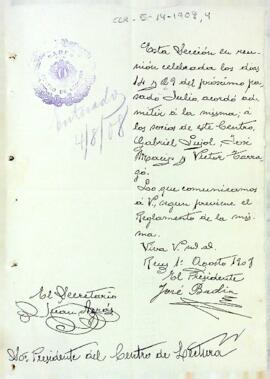 CLR-E-14-1908,4
Enterado
4/8/08
Esta Sección en reu-
nión celebrada los dias
14 y 29 del próximo pa-
sado Julio, acordó ad-
mitir á la misma, á
los socios de este Centro,
Gabriel Pujol, José
y Victor Tarra-
gó.
Lo que comunicamos
á V., segun previene el
Reglamento de la mis-
ma.
Viva V. m. a.
Reus 1º Agosto 1908
El Presidente
José Badia
El Secretario
Juan
Sor. Presidente del Centro de Lectura